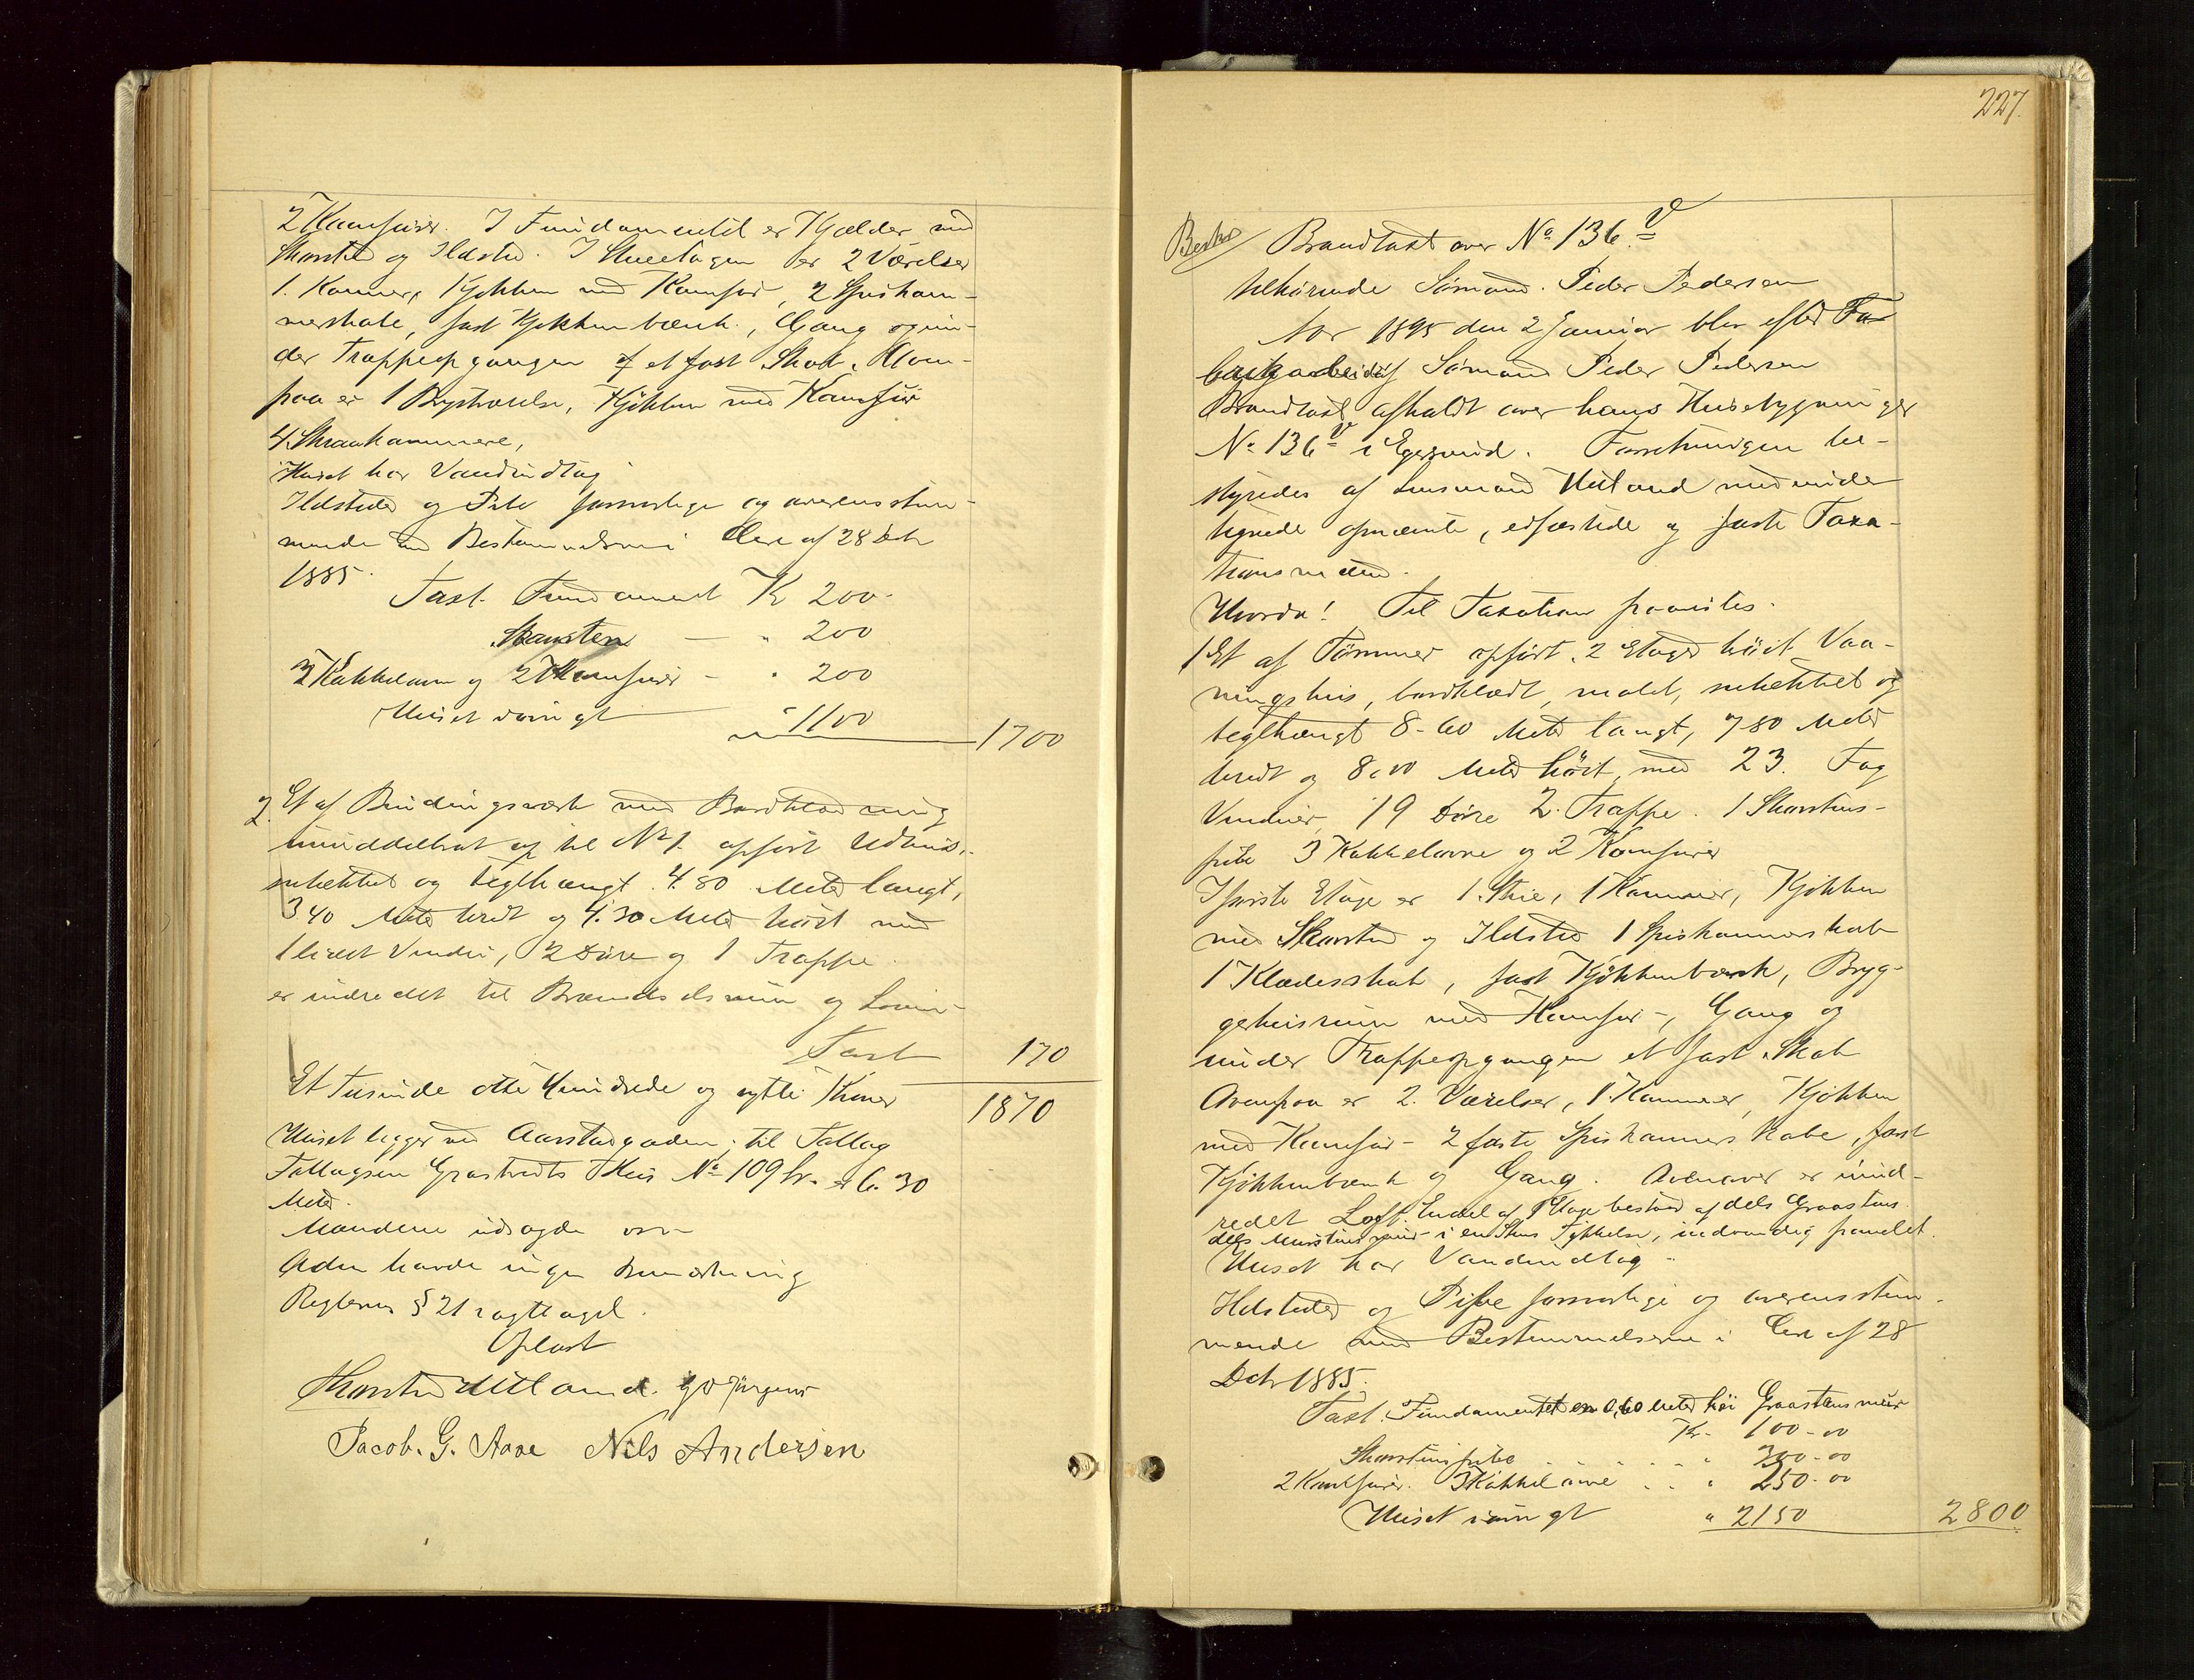 2 Kamfurer. I Fundamentet er Kjælder med
Skorsted og Ildsted. I Stueetagen er 2 Værelser
1. Kammer, Kjøkken med Kamfur, 2 Spiskam-
merskabe, fast Kjøkkenbænk, Gang og un-
der Trappeopgangen et fast Skab. Oven-
paa er 1 Brystværelse, Kjøkken med Kamfür
4 Skraakammere,
Huset har Vandindtag
Ildsteder og Pibe forsvarlige og overensstem-
mende med Bestemmelserne i Circ af 28 Dcbr
1885.
Taxt. Fundament Kr 200-
Skorsten — " 200
3 Kakkelovn og 2 Kamfurer - " 200
Huset iøvrigt — " 1100
1700
2. Et af Bindingsværk med Bordklædning
umiddelbart op til No 1. opført Udhus,
subækket og teglhængt. 4.80 Meter langt,
3.40 Meter bredt og 4.30 Meter høit med
1 lidet Vindu, 2 Døre og 1 Trappe.
er indredet til Brændselsrum og
Taxt 170
Et Tusinde otte Hundrede og sytti Kroner
1870
Huset ligger ved Aarstadgaden; til Tollag
Tollagsen Grastveits Hus No 109 br. er 6.30
Meter.
Mændene udsagde osv-
Ingen havde ingen Bemærkning
Reglernes § 21 iagttaget.
Oplæst
Thorsted Uitland.
Jacob. G. Aase Nils Andersen
227.
Brandtaxt over No 136 v
tilhørende Sømand. Peder Pedersen
Aar 1895 den 2 Januar blev efter Fa
brikarbeider Sømand Peder Pedersen
Brandtaxt afholdt over hans Husebygninger
No 136 v i Egersund. Forretningen be-
styredes af Lensmand Uitland med under
tegnede opnævnte, edfæstede og faste Taxa-
tionsmænd.
Hvorda! Til Taxation fremvistes.
1 Et af Tømmer opført, 2 Etager høit Vaa-
ningshus, bordklædt, malet, subækket og
teglhængt 8-60 Meter langt, 7-80 Meter
bredt og 8,00 Meter høit, med 23. Fag
Vinduer, 19 Døre 2. Trappe. 1 Skorstens-
pibe 3 Kakkelovne og 2 Kamfurer
I første Etage er 1. Stue, 1 Kammer, Kjøkken
med Skorsted og Ildsted 1 Spiskammerskab
1 Klædesskab, fast Kjøkkenbænk, Bryg-
gerhusrum med Kamfur-, Gang og
under Trappeopgangen et fast Skab
Ovenpaa er 2. Værelser, 1 Kammer, Kjøkken
med Kamfur - 2 faste Spiskammerskabe, fast
Kjøkkenbænk og Gang. Ovenover er uind-
redet Loft. Endel af 1 Etage bestaar af dels Graastens
dels Murstensmur i en Stens Tykkelse, indvendig panelet.
Huset har Vandindtag -
Ildsteder og Pibe forsvarlige og overensstem-
mende med Bestemmelserne i Circ af 28
Dcbr 1885.
Taxt. Fundamentet en 0,60 Meter høi Graastens mür
Kr- 100-00
Skorstenspibe . . . . " 300-00
2 Kamfurer. 3 Kakkelovne . . " 250-00
Huset iøvrigt " 2150
2800